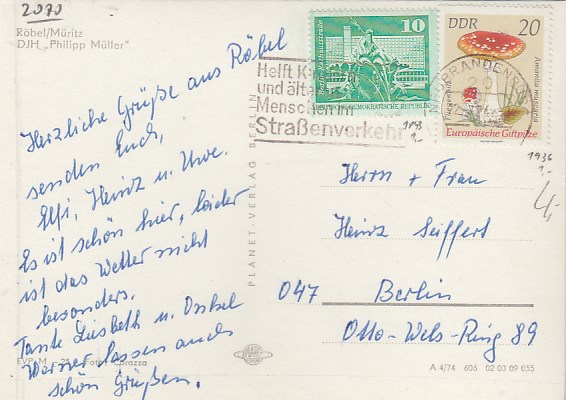 2070
Röbel/Müritz
DJH „Philipp Müller"
Herzliche Grüße aus Röbel
senden Euch,
Elfi, Heinz u. Uwe.
Es ist schön hier, leider
ist das Wetter nicht
besonders.
Tante Lisbeth u. Onkel
Werner lassen auch
schön Grüßen.
EVP M Foto: Corazza
PLANET-VERLAG BERLIN
Helft Kindern
und älteren
Menschen im
Straßenverkehr
10
DEMOKRATISCHE REPUBLIK
DDR 20
Fliegenpilz
Amanita muscaria
Europäische Giftpilze
NEUBRANDENBURG
1843
1,-
1936
1,-
4,-
Herrn + Frau
Heinz Seiffert
047 Berlin
Otto-Wels-Ring 89
A 4/74 606 02 03 09 055